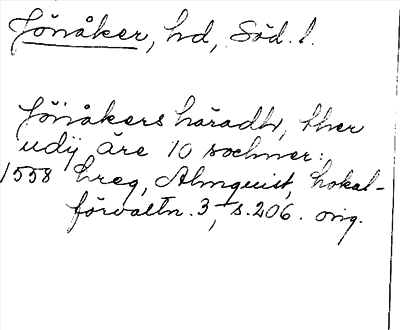 Jönåker, hd, Söd. l.
Jönåkers häradh, ther
udij äre 10 sochner:
1558 hreg, Almquist, Lokal-
förvaltn. 3, s. 206. orig.